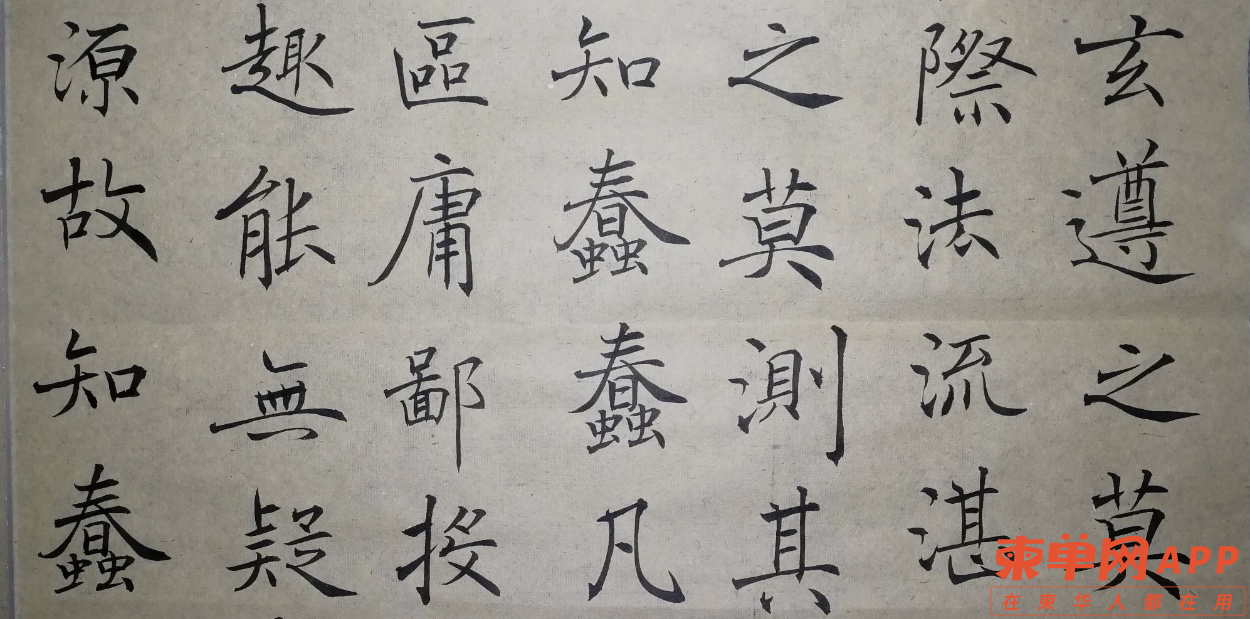 玄遵之莫
際法流湛
之莫測其
知蠢蠢凡
區庸鄙投
趣能無疑
源故知蠢
柬单网APP
在柬华人都在用